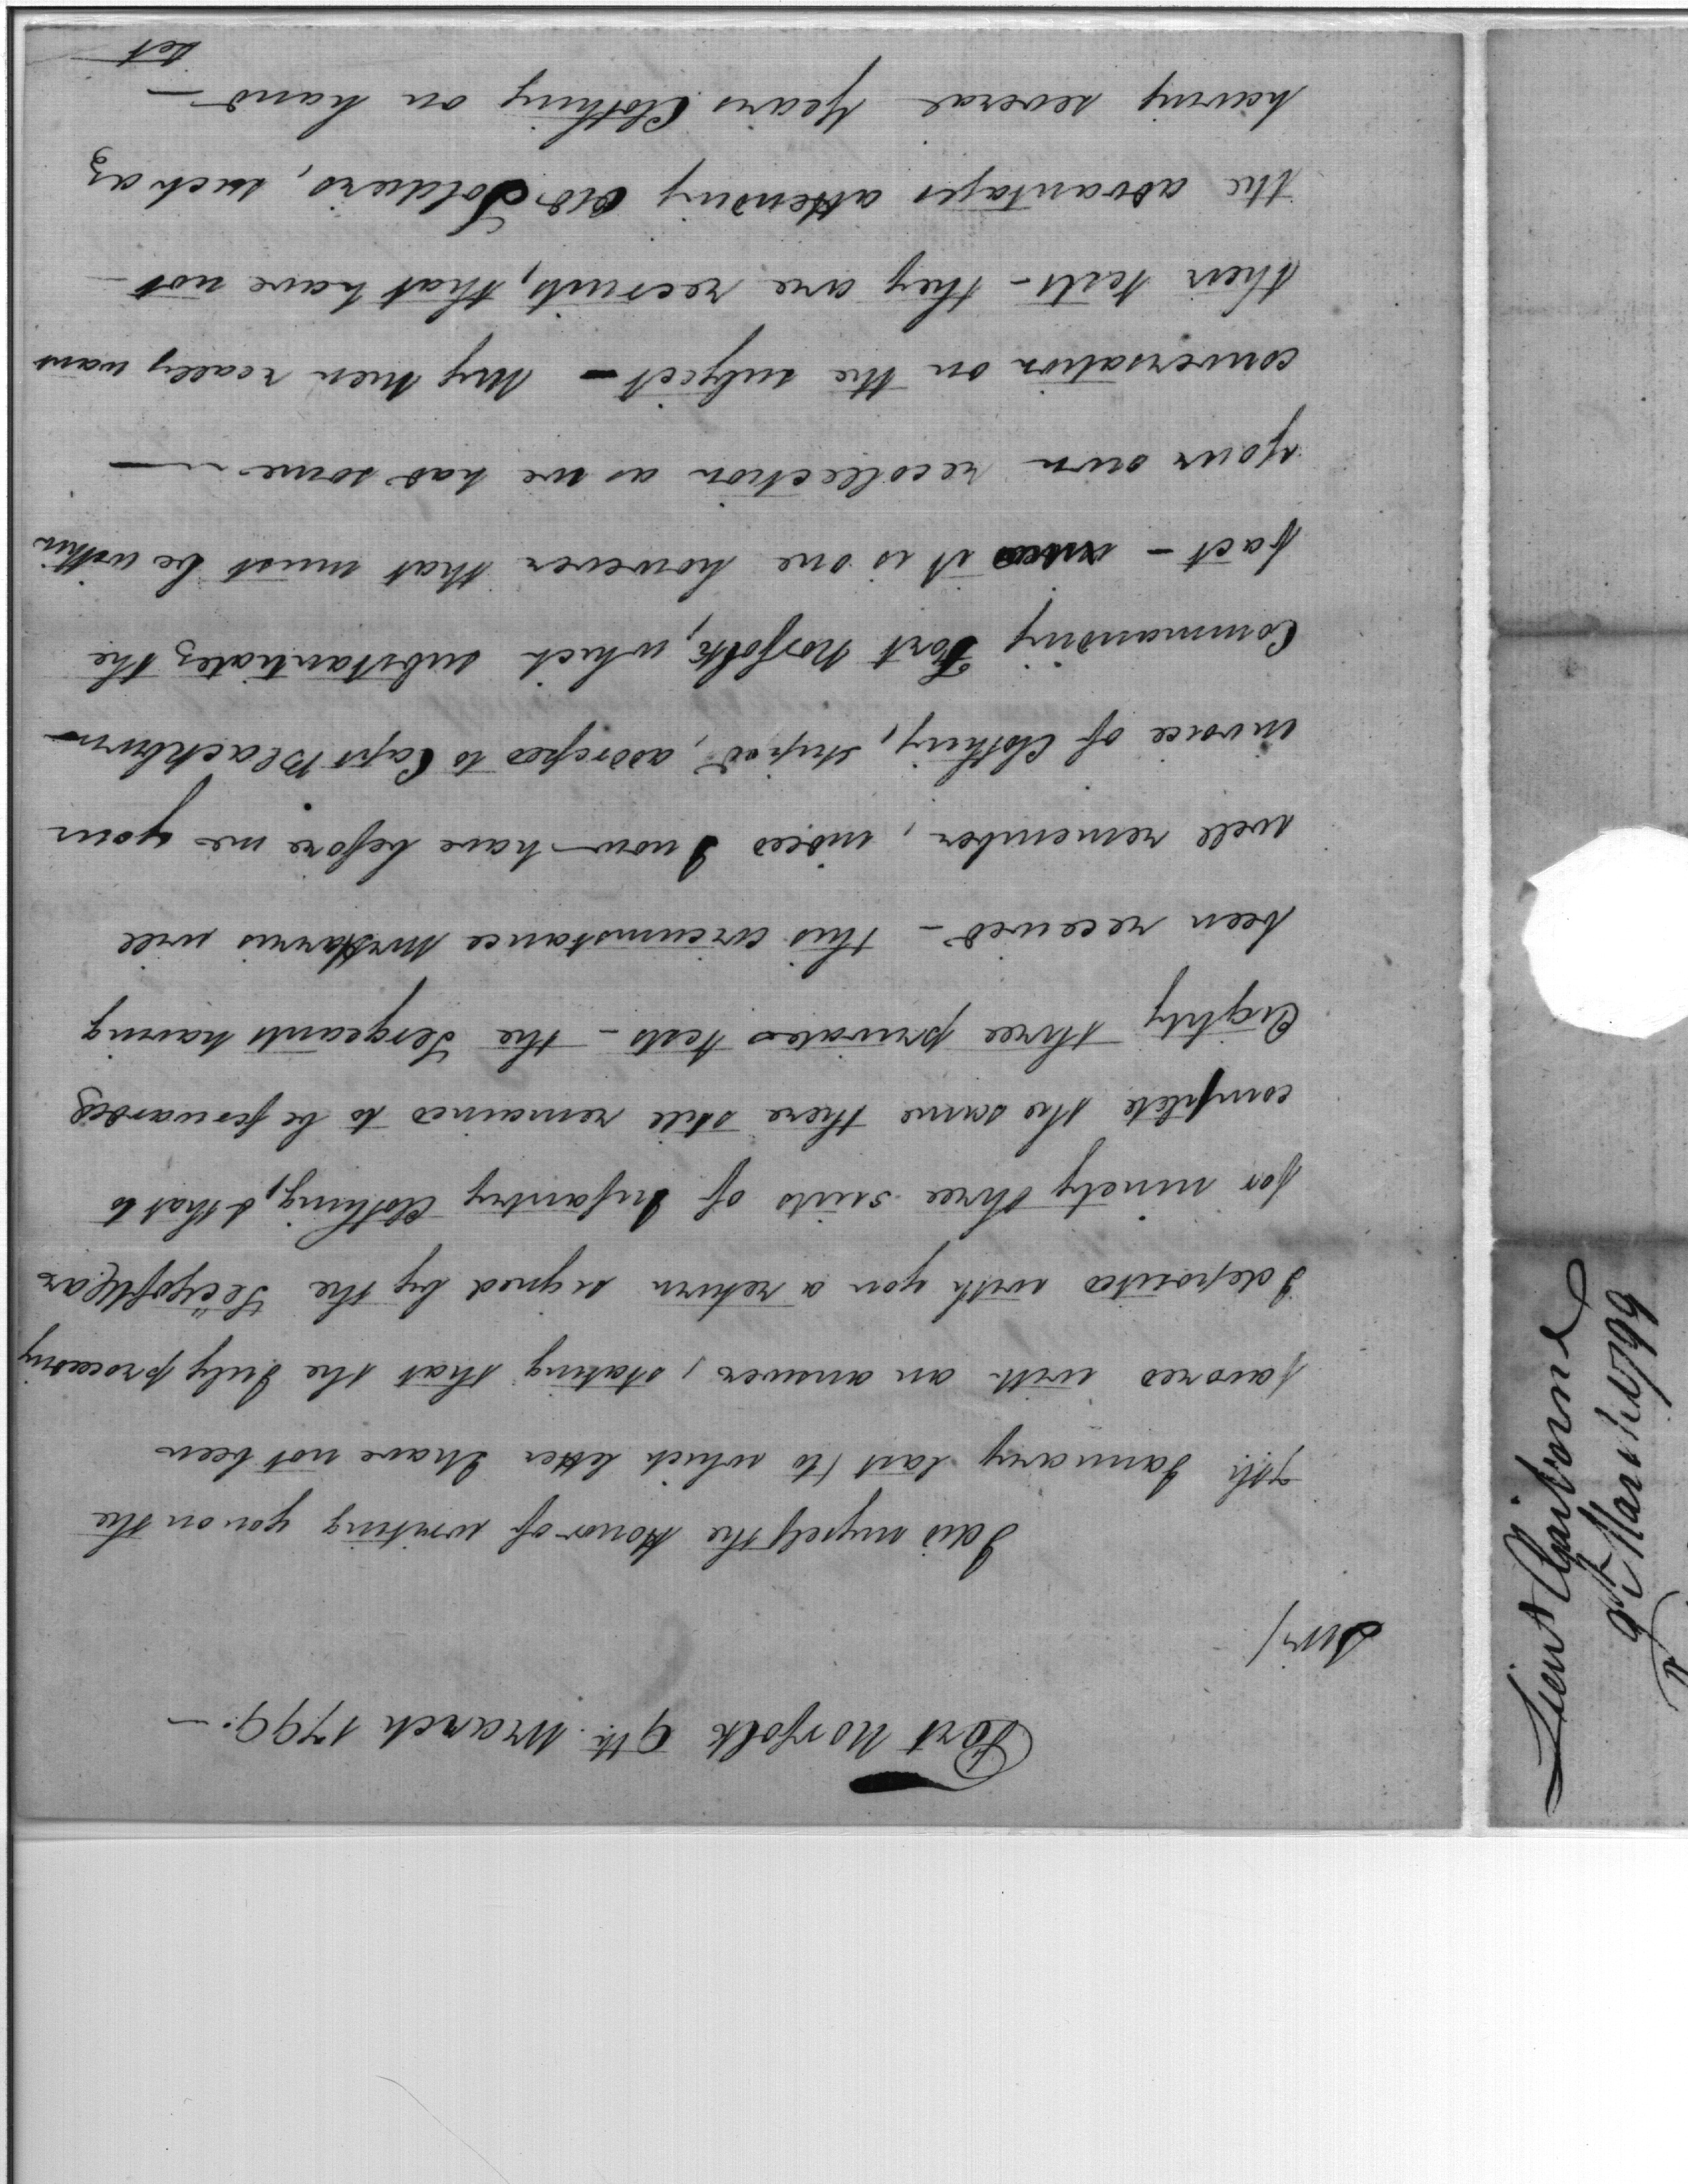 Fort Norfolk 9th. March 1799.—
Sir/
I did myself the Honor of writing you on the
7th. January last (to which letter I have not been
favored with an answer, stating that the July preceding
I deposited with you a return signed by the Secy of War
for ninety three suits of Infantry Clothing, & that to
complete the same there still remained to be forwarded
Eighty three privates – the Sergeants having
been received – this circumstance Mr Harris will
well remember, indeed I now have before me your
invoice of Clothing, addressed to Capt Blackburn
Commanding Fort Norfolk, which substantiates the
fact – it is one however that must be within
your own recollection as we had some —
conversation on the subject – My Men really want
their – they are recruits, that have not
the advantages attending old Soldiers, such as
having several Years Clothing on hand —
Lieut Claiborne
9th March 1799